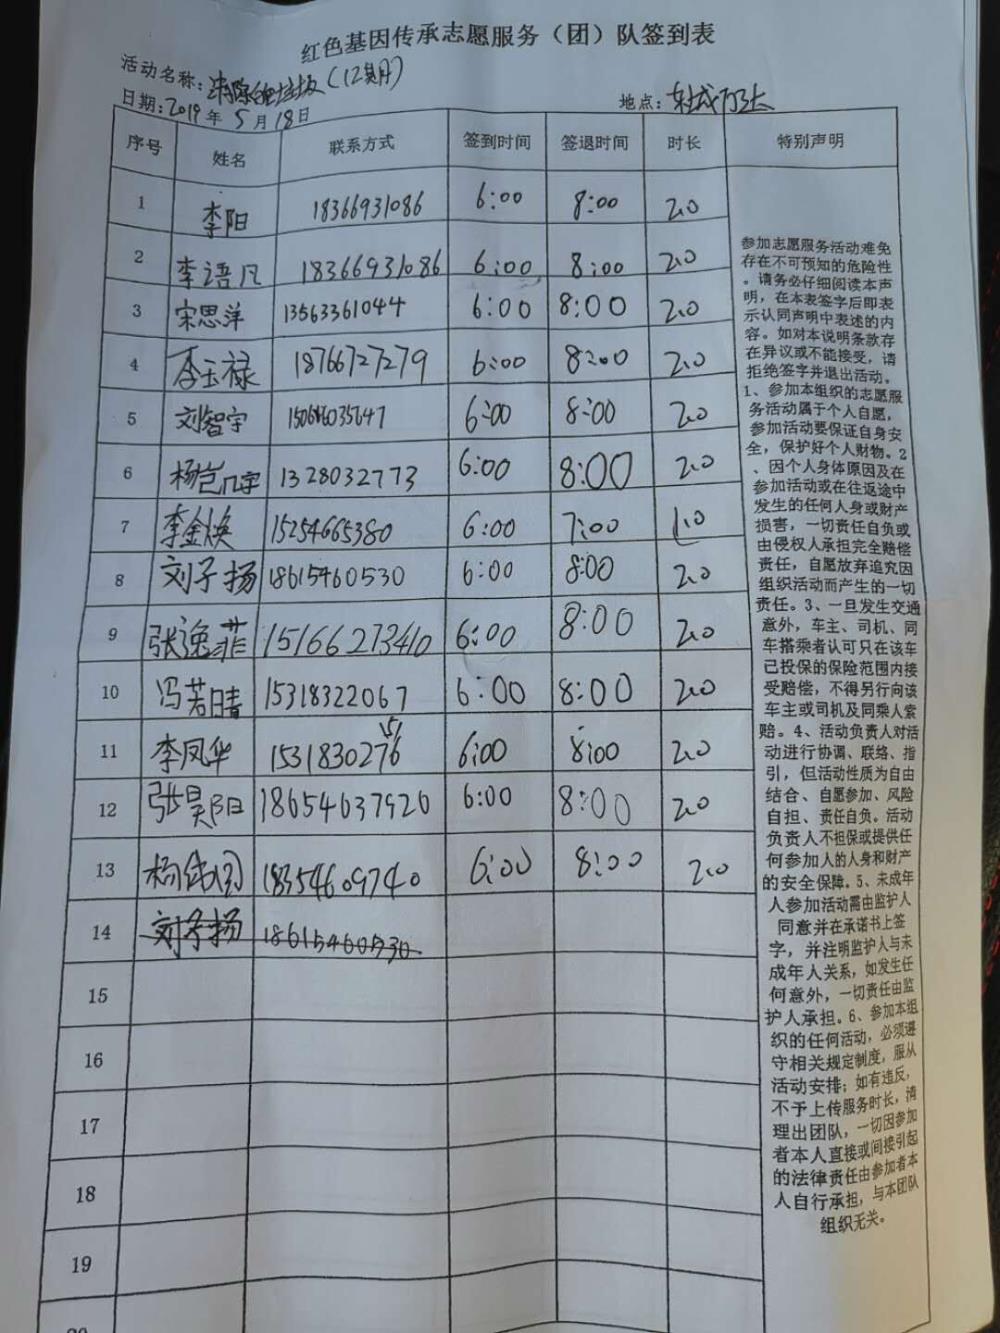 红色基因传承志愿服务（团）队签到表
活动名称：清除白色垃圾（12其月）
日期：2019年5月18日 地点：东城万达
序号 姓名 联系方式 签到时间 签退时间 时长 特别声明
1 李阳 18366931086 6:00 8:00 2.0
2 李语凡 18366931086 6:00 8:00 2.0
3 宋思洋 13563361044 6:00 8:00 2.0
4 李玉禄 18766727279 6:00 8:00 2.0
5 刘智宇 6:00 8:00 2.0
6 杨岂凡宇 1328032773 6:00 8:00 2.0
7 李金焕 15254665380 6:00 7:00 1.0
8 刘子扬 18615460530 6:00 8:00 2.0
9 张逸菲 15166273410 6:00 8:00 2.0
10 冯若晴 15318322067 6:00 8:00 2.0
11 李凤华 6:00 8:00 2.0
12 张昊阳 18654637920 6:00 8:00 2.0
13 18354609740 6:00 8:00 2.0
14 刘子扬 18615460530
15
16
17
18
19
参加志愿服务活动难免
存在不可预知的危险性
。请务必仔细阅读本声
明，在本表签字后即表
示认同声明中表述的内
容。如对本说明条款存
在异议或不能接受，请
拒绝签字并退出活动。
1、参加本组织的志愿服
务活动属于个人自愿，
参加活动要保证自身安
全，保护好个人财物。2
、因个人身体原因及在
参加活动或在往返途中
发生的任何人身或财产
损害，一切责任自负或
由侵权人承担完全赔偿
责任，自愿放弃追究因
组织活动而产生的一切
责任。3、一旦发生交通
意外，车主、司机、同
车搭乘者认可只在该车
已投保的保险范围内接
受赔偿，不得另行向该
车主或司机及同乘人索
赔。4、活动负责人对活
动进行协调、联络、指
引，但活动性质为自由
结合、自愿参加、风险
自担、责任自负。活动
负责人不担保或提供任
何参加人的人身和财产
的安全保障。5、未成年
人参加活动需由监护人
同意并在承诺书上签
字，并注明监护人与未
成年人关系，如发生任
何意外，一切责任由监
护人承担。6、参加本组
织的任何活动，必须遵
守相关规定制度，服从
活动安排；如有违反，
不予上传服务时长，清
理出团队，一切因参加
者本人直接或间接引起
的法律责任由参加者本
人自行承担，与本团队
组织无关。